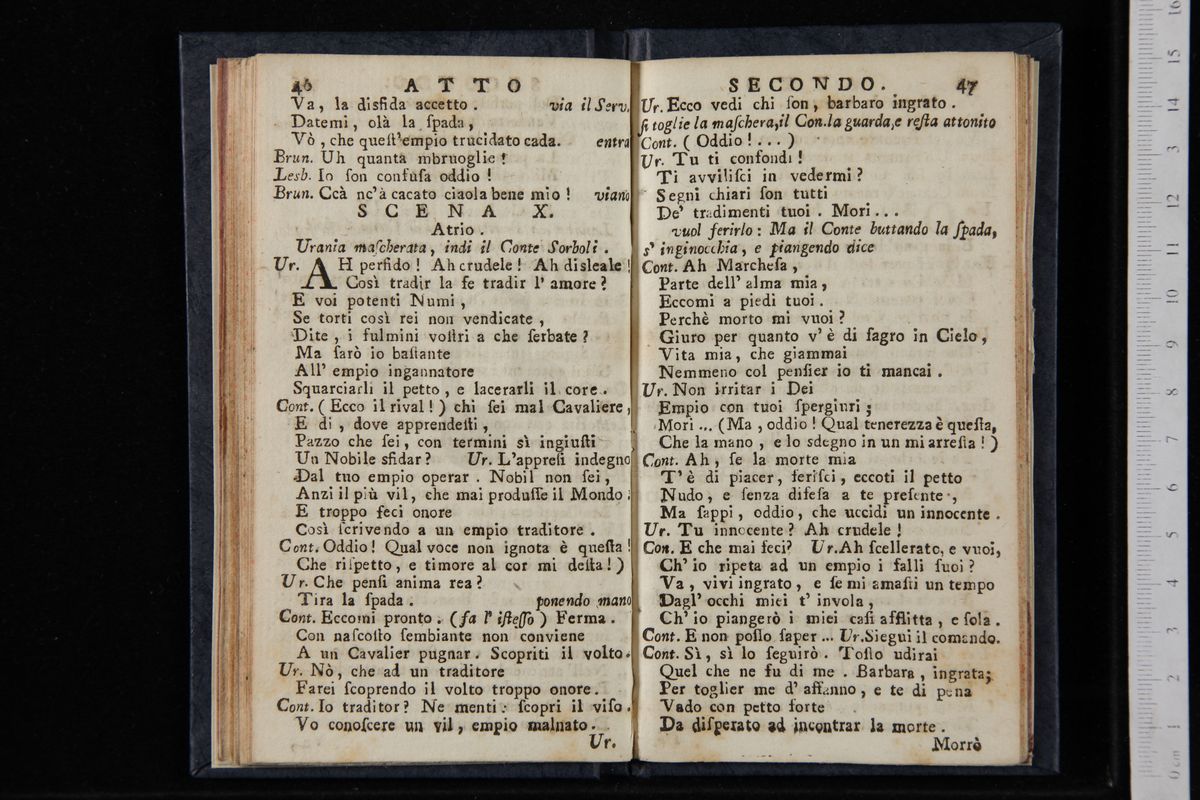 46 ATTO
Va, la disfida accetto. via il Serv.
Datemi, olà la ſpada,
Vò, che queſt'empio trucidato cada. entra
Brun. Uh quanta mbruoglie!
Lesb. Io ſon confuſa oddio!
Brun. Ccà nc'à cacato ciaola bene mio! viano
SCENA X.
Atrio.
Urania maſcherata, indi il Conte Sorboli.
Ur. AH perfido! Ah crudele! Ah disleale!
Così tradir la fe tradir l'amore?
E voi potenti Numi,
Se torti così rei non vendicate,
Dite, i fulmini voſtri a che ſerbate?
Ma farò io baſtante
All' empio ingannatore
Squarciarli il petto, e lacerarli il core.
Cont. (Ecco il rival!) chi ſei mal Cavaliere,
E di, dove apprendeſti,
Pazzo che ſei, con termini sì ingiuſti
Un Nobile sfidar? Ur. L'appreſi indegno
Dal tuo empio operar. Nobil non ſei,
Anzi il più vil, che mai produſſe il Mondo;
E troppo feci onore
Così ſcrivendo a un empio traditore.
Cont. Oddio! Qual voce non ignota è queſta!
Che riſpetto, e timore al cor mi deſta!)
Ur. Che penſi anima rea?
Tira la ſpada. ponendo mano
Cont. Eccomi pronto. (fa l'iſteſſo) Ferma.
Con naſcoſto ſembiante non conviene
A un Cavalier pugnar. Scopriti il volto.
Ur. Nò, che ad un traditore
Farei ſcoprendo il volto troppo onore.
Cont. Io traditor? Ne menti: ſcopri il viſo.
Vo conoſcere un vil, empio malnato.
Ur.
SECONDO. 47
Ur. Ecco vedi chi ſon, barbaro ingrato.
ſi toglie la maſchera, il Con. la guarda, e reſta attonito
Cont. (Oddio!...)
Ur. Tu ti confondi!
Ti avviliſci in vedermi?
Segni chiari ſon tutti
De' tradimenti tuoi. Mori...
vuol ferirlo: Ma il Conte buttando la ſpada,
s' inginocchia, e piangendo dice
Cont. Ah Marcheſa,
Parte dell' alma mia,
Eccomi a piedi tuoi.
Perchè morto mi vuoi?
Giuro per quanto v'è di ſagro in Cielo,
Vita mia, che giammai
Nemmeno col penſier io ti mancai.
Ur. Non irritar i Dei
Empio con tuoi ſpergiuri;
Mori... (Ma, oddio! Qual tenerezza è queſta,
Che la mano, e lo sdegno in un mi arreſta!)
Cont. Ah, ſe la morte mia
T'è di piacer, feriſci, eccoti il petto
Nudo, e ſenza difeſa a te preſente,
Ma ſappi, oddio, che uccidi un innocente.
Ur. Tu innocente? Ah crudele!
Con. E che mai feci? Ur. Ah ſcellerato, e vuoi,
Ch' io ripeta ad un empio i falli ſuoi?
Va, vivi ingrato, e ſe mi amaſti un tempo
Dagl' occhi miei t' invola,
Ch' io piangerò i miei caſi afflitta, e ſola.
Cont. E non poſſo ſaper... Ur. Siegui il comando.
Cont. Sì, sì lo ſeguirò. Toſto udirai
Quel che ne fu di me. Barbara, ingrata;
Per toglier me d' affanno, e te di pena
Vado con petto forte
Da diſperato ad incontrar la morte.
Morrò
0 cm 1 2 3 4 5 6 7 8 9 10 11 12 13 14 15 16